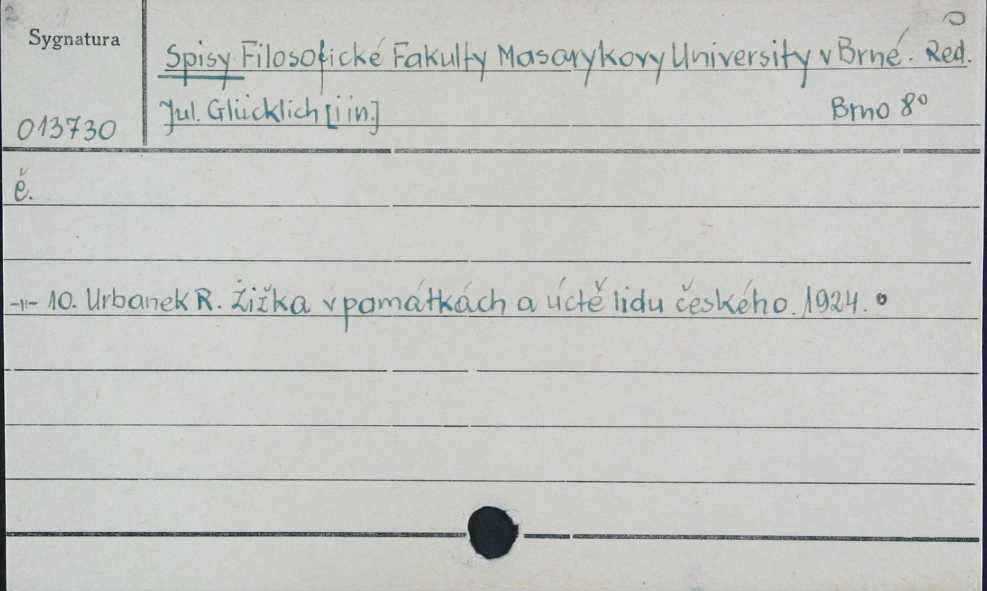 2
Sygnatura
Spisy Filosofické Fakulty Masarykovy University v Brně. Red.
Jul. Glücklich [i in.] Brno 8°
013730
č.
-"- 10. Urbanek R. Žižka v pamatkách a úctě lidu českého. 1924.